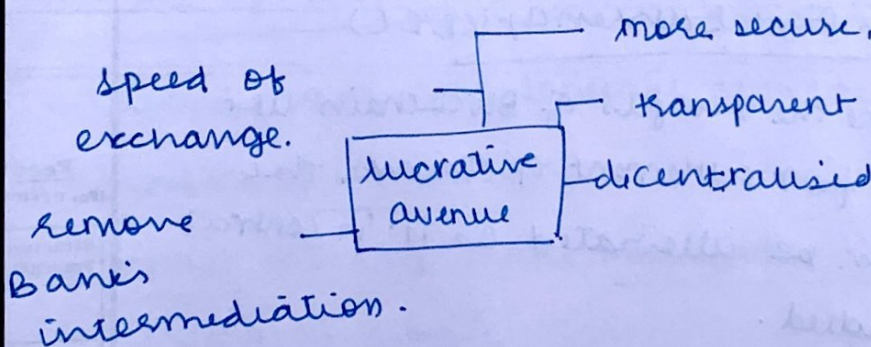 more secure.
speed of
exchange.
transparent
lucrative
avenue
decentralised
remove
Bank's
intermediation.